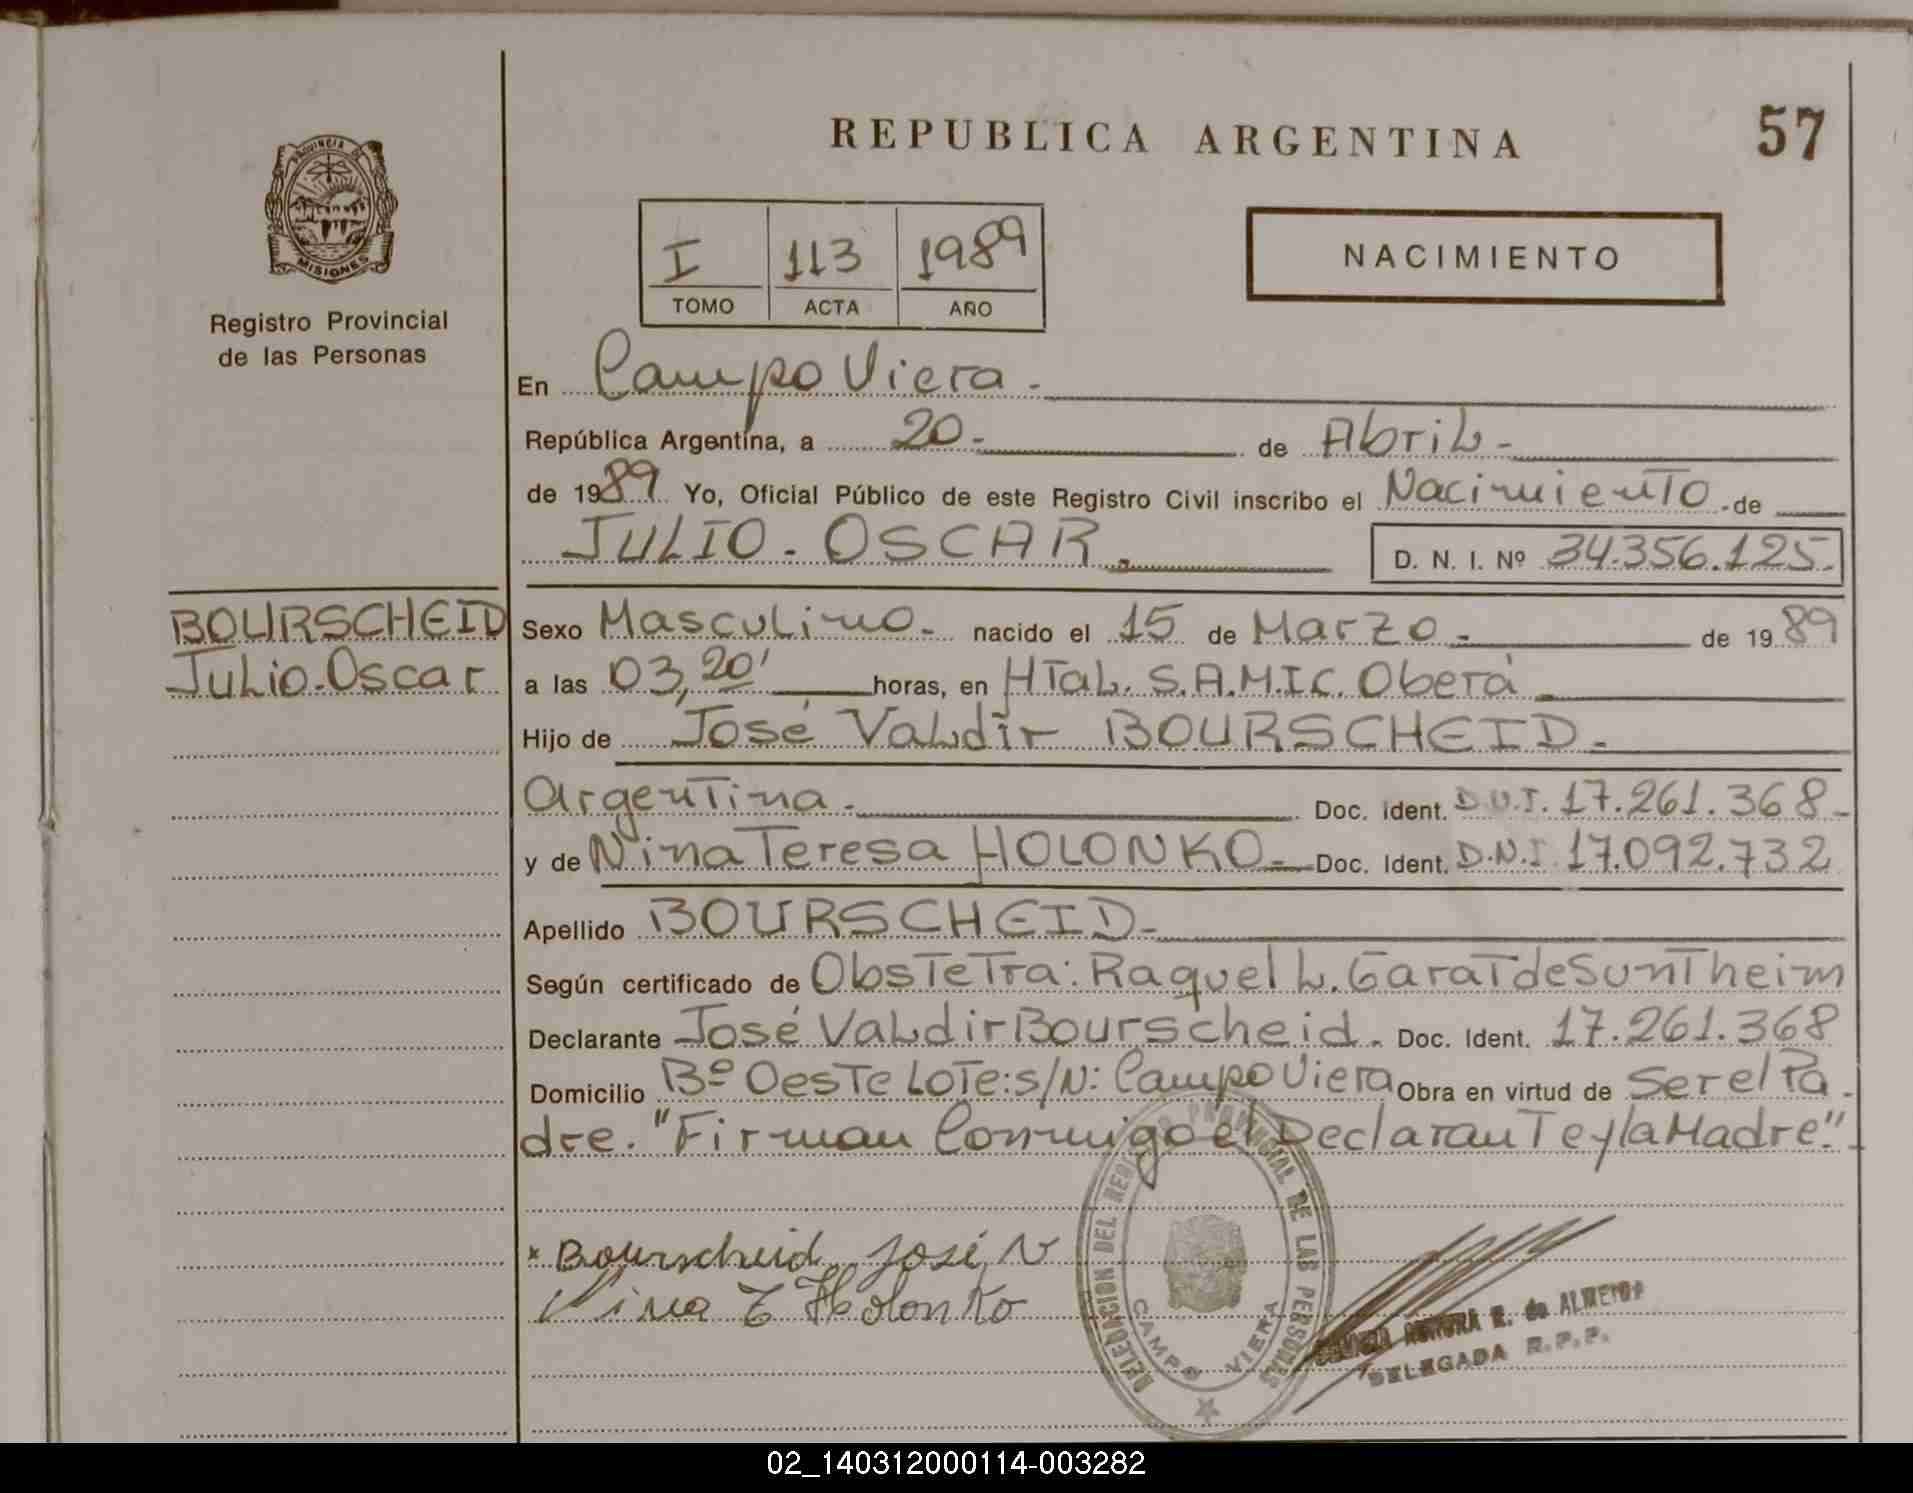 REPUBLICA ARGENTINA
57
PROVINCIA DE
MISIONES
Registro Provincial
de las Personas
I 113 1989
TOMO ACTA AÑO
NACIMIENTO
En Campo Viera.-
República Argentina, a 20.- de Abril.-
de 1989 Yo, Oficial Público de este Registro Civil inscribo el Nacimiento.de
JULIO.OSCAR.
D. N. I. Nº 34.356.125.
BOURSCHEID
Julio.Oscar
Sexo Masculino.- nacido el 15 de Marzo.- de 1989
a las 03,20' horas, en HTal. S.A.M.I.C. Oberá.
Hijo de José Valdir BOURSCHEID.-
Argentina.- Doc. Ident. D.N.I. 17.261.368.-
y de Nina Teresa HOLONKO.- Doc. Ident. D.N.I. 17.092.732
Apellido BOURSCHEID.-
Según certificado de Obstetra: Raquel L. Garat de Suntheim
Declarante José Valdir Bourscheid. Doc. Ident. 17.261.368
Domicilio Bº Oeste Lote: s/N: Campo Viera Obra en virtud de Ser el Pa
dre. "Firman Conmigo el Declarante y la Madre".-
x Bourscheid, José, V
Nina T Holonko
DELEGACION DEL REGISTRO PROVINCIAL DE LAS PERSONAS
CAMPO VIERA
AURORA E. de ALMEIDA
DELEGADA R.P.P.
02_140312000114-003282